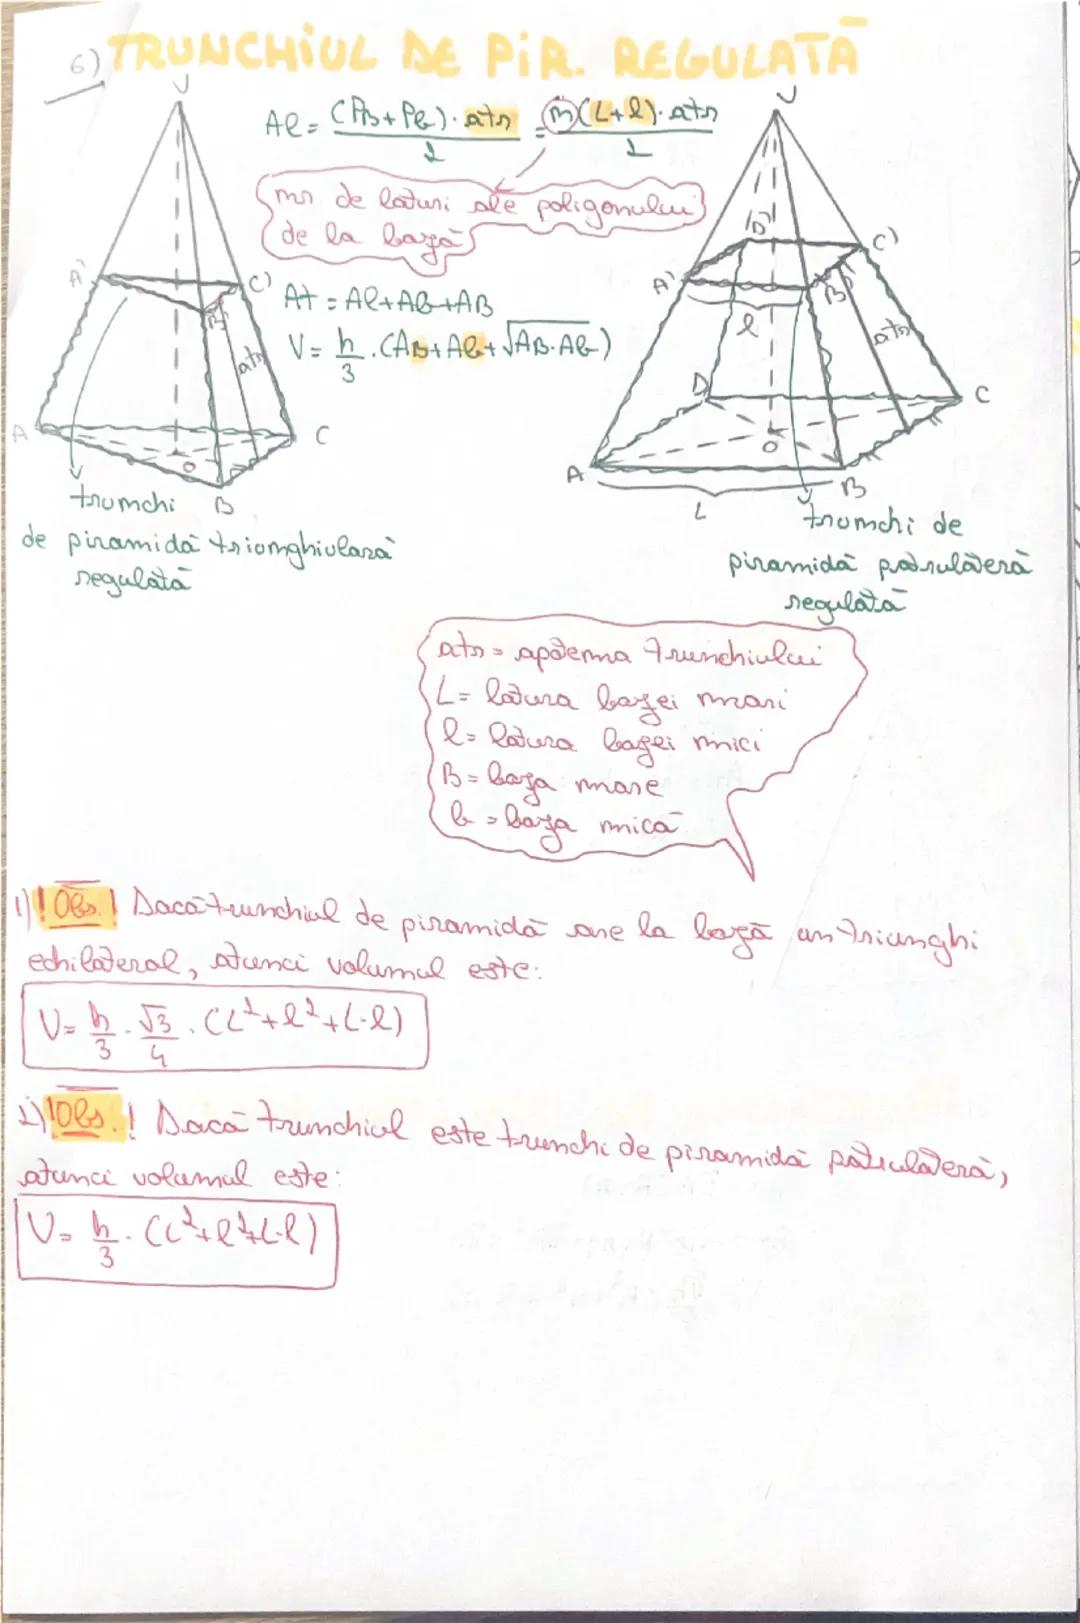 6) TRUNCHIUL DE PIR. REGULATĂ
Al = (PB + Pb) · atr / 2 = n(L+l) · atr / 2
nr. de laturi ale poligonului
de la bază
At = Al + Ab + AB
V = h/3 · (AB + Ab + √AB·Ab)
V
A'
C'
B'
atr
A
O
C
B
trunchi
de piramidă triunghiulară
regulată
V
D'
C'
A'
B'
l
atr
D
C
O
A
B
L
trunchi de
piramidă patrulateră
regulată
atr = apotema trunchiului
L = latura bazei mari
l = latura bazei mici
B = baza mare
b = baza mică
1) ! Obs. ! Dacă trunchiul de piramidă are la bază un triunghi
echilateral, atunci volumul este:
V = h/3 · √3/4 · (L² + l² + L·l)
2) ! Obs. ! Dacă trunchiul este trunchi de piramidă patrulateră,
atunci volumul este:
V = h/3 · (L² + l² + L·l)